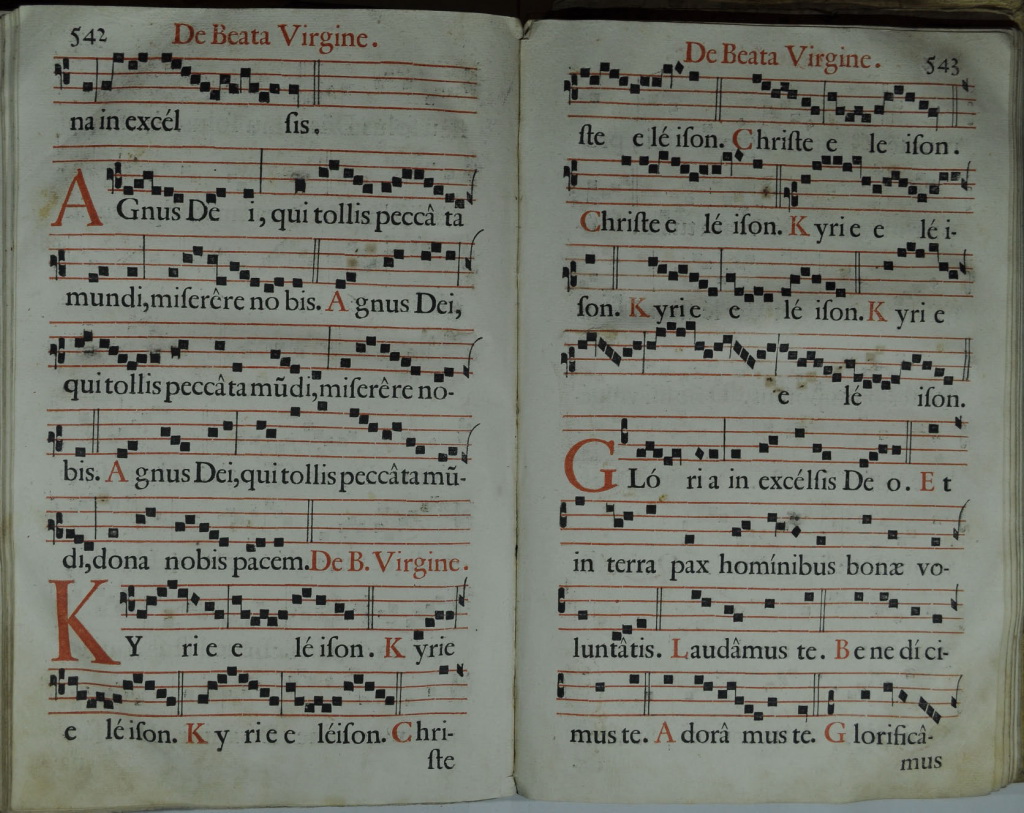 542 De Beata Virgine.
na in excél sis.
AGnus De i, qui tollis peccâ ta
mundi, miserêre no bis. A gnus Dei,
qui tollis peccâta mũdi, miserêre no-
bis. A gnus Dei, qui tollis peccâta mũ-
di, dona nobis pacem. De B. Virgine.
KY ri e e lé ison. K yrie
e lé ison. K y ri e e léison. Chri-
ste
De Beata Virgine. 543
ste e lé ison. Christe e le ison.
Christe e lé ison. K yri e e lé i-
son. K yri e e lé ison. K yri e
e lé ison.
GLÓ ri a in excélsis De o. E t
in terra pax homínibus bonæ vo-
luntâtis. Laudâmus te. Be ne dí ci-
mus te. A dorâ mus te. G lorificâ-
mus